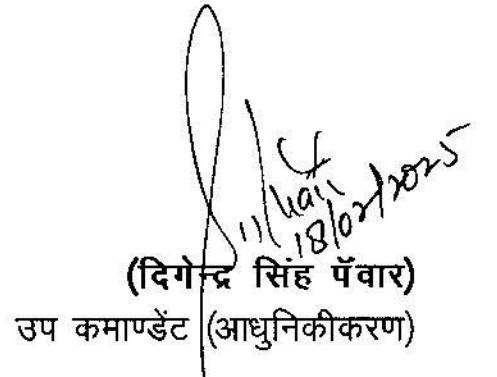 18/02/2025
(दिगेन्द्र सिंह पॅवार)
उप कमाण्डेंट (आधुनिकीकरण)